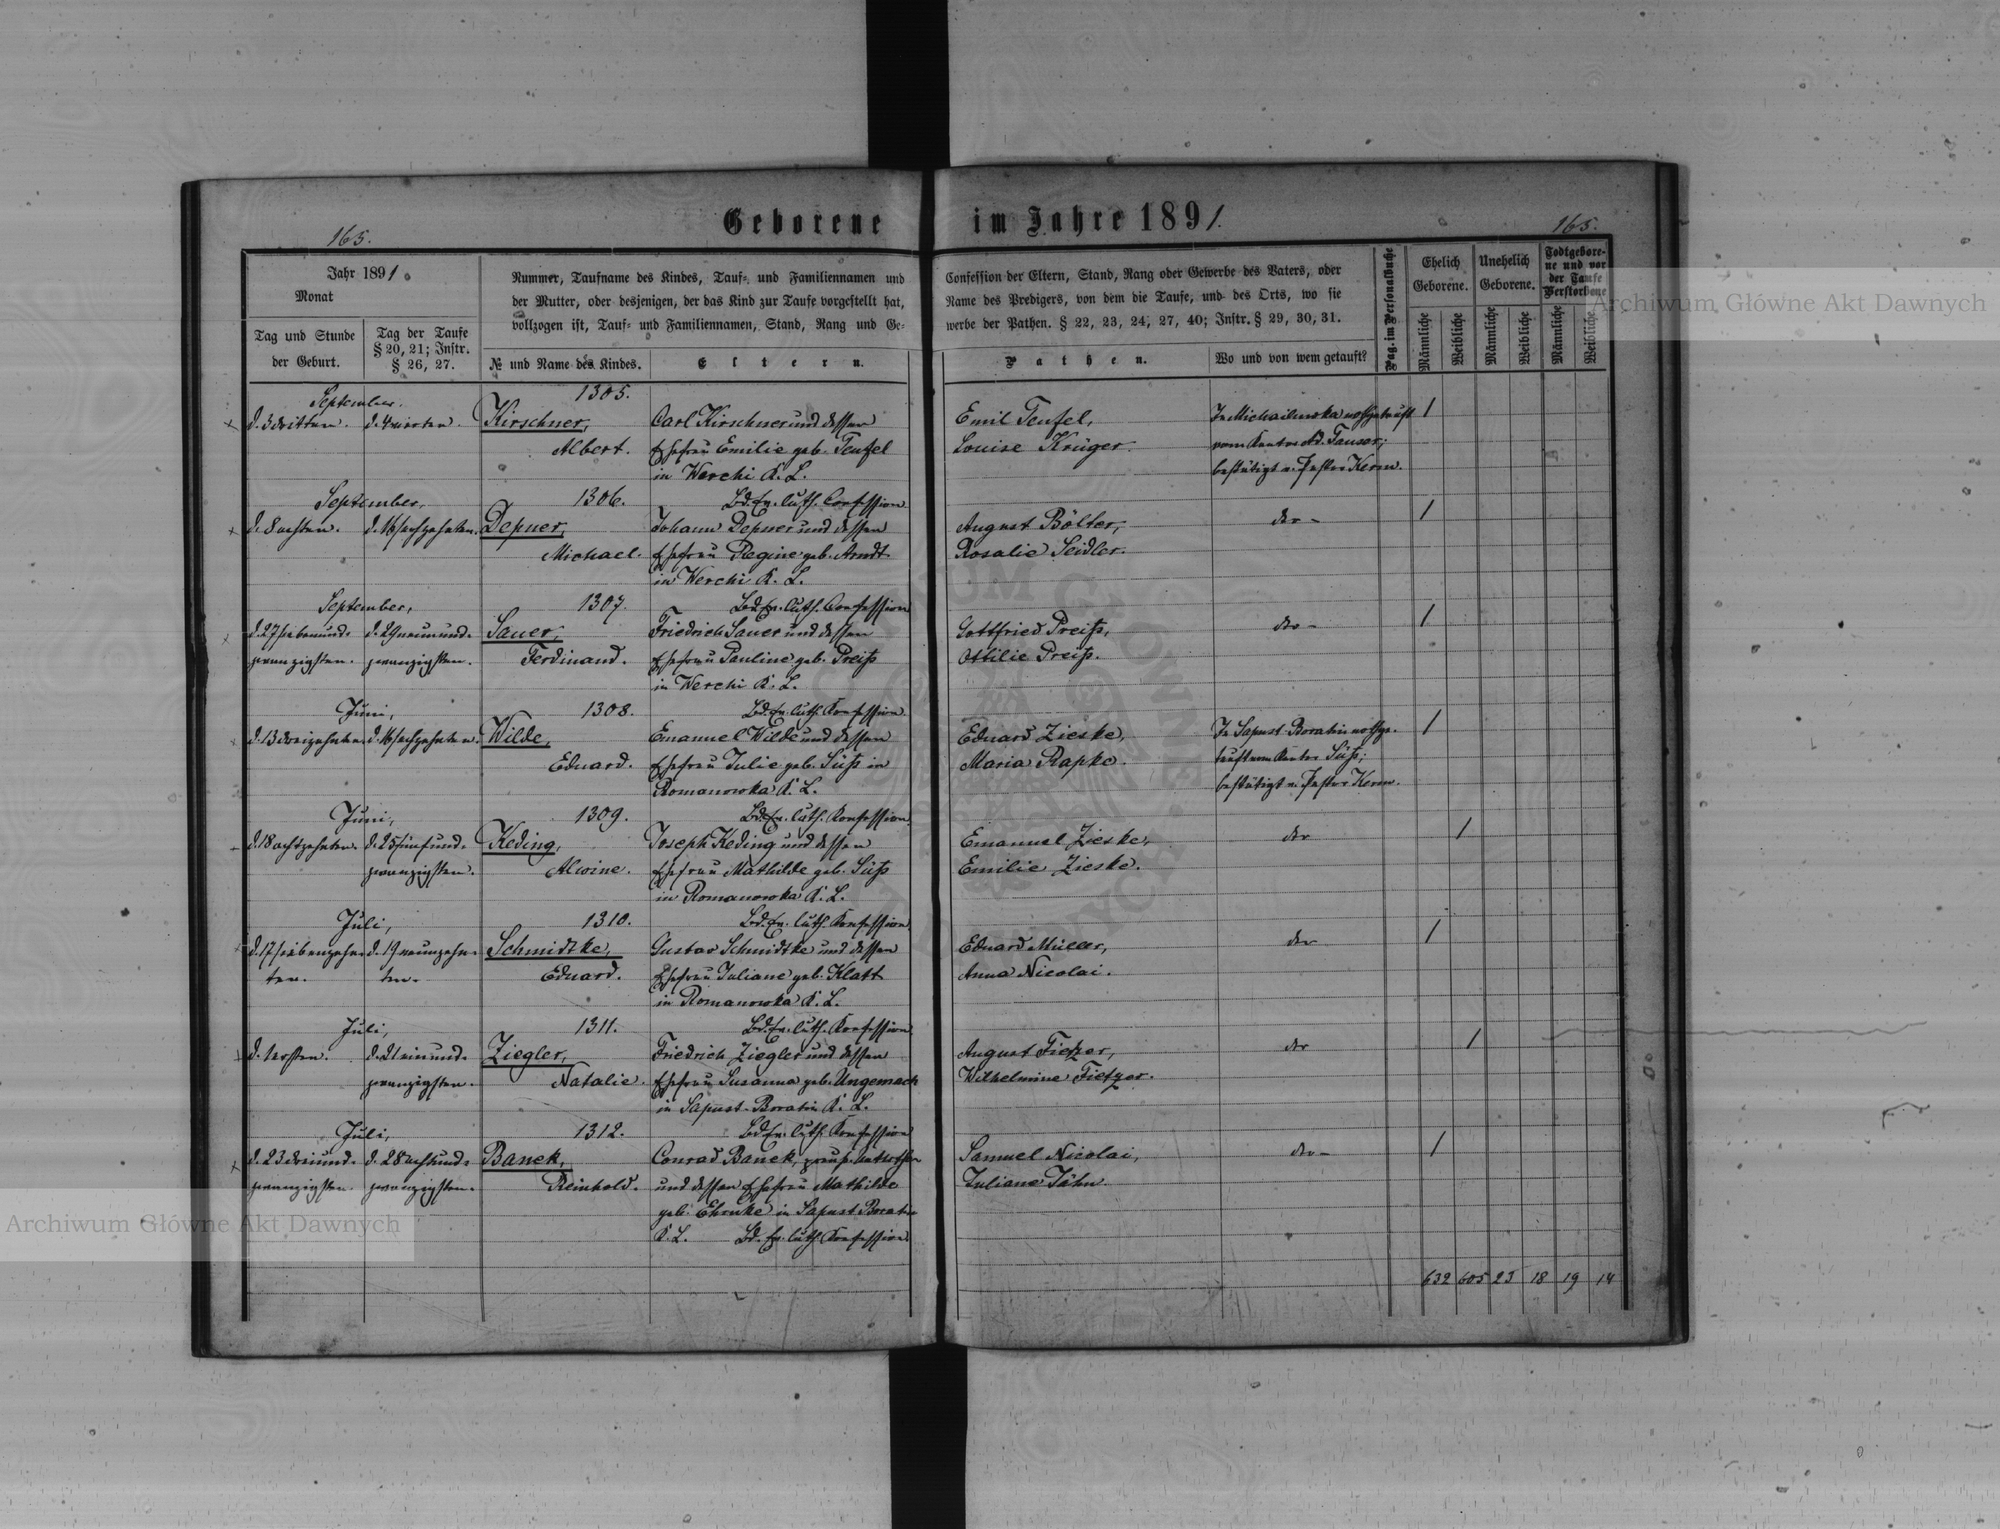 Geborene im Jahre 1891.
165.
165.
Jahr 1891
Monat
Tag und Stunde der Geburt.
Tag der Taufe § 20, 21; Instr. § 26, 27.
Nummer, Taufname des Kindes, Tauf- und Familiennamen und
der Mutter, oder desjenigen, der das Kind zur Taufe vorgestellt hat,
vollzogen ist, Tauf- und Familiennamen, Stand, Rang und Ge-
№ und Name des Kindes.
Eltern.
Confession der Eltern, Stand, Rang oder Gewerbe des Vaters, oder
Name des Predigers, von dem die Taufe, und des Orts, wo sie
werbe der Pathen. § 22, 23, 24, 27, 40; Instr. § 29, 30, 31.
Pathen.
Wo und von wem getauft?
Pag. im Personalbuche
Ehelich Geborene.
Unehelich Geborene.
Todtgeborene und vor der Taufe Verstorbene
Männliche
Weibliche
Männliche
Weibliche
Männliche
Weibliche
September,
1305.
d. 3 dritten. d. 4 vierten. Kirschner, Carl Kirschner und dessen Emil Teufel, In Michailuwka nothgetauft 1
Albert. Ehefrau Emilie geb. Teufel Louise Krüger. vom Kantor Ad. Fauser;
in Werchi K. L. bestätigt v. Pastor Kerm.
September, 1306. Bd. Ev. luth. Confession
d. 8 achten. d. 16 sechzehnten. Depner, Johann Depner und dessen August Bölter, der- 1
Michael. Ehefrau Regine geb. Arndt Rosalie Seidler.
in Werchi K. L.
September, 1307. Bd. Ev. luth. Confession
d. 27 siebenund- d. 29 neunund- Sauer, Friedrich Sauer und dessen Gottfried Preiß, der- 1
zwanzigsten. zwanzigsten. Ferdinand. Ehefrau Pauline geb. Preiß Ottilie Preiß.
in Werchi K. L.
Juni, 1308. Bd. Ev. luth. Konfession
d. 13 dreizehnten d. 16 sechzehnten. Wilde, Emanuel Wilde und dessen Eduard Zieske, In Sapust-Boratin nothge- 1
Eduard. Ehefrau Julie geb. Süß in Maria Rapke. tauft vom Kantor Süß;
Romanowka K. L. bestätigt v. Pastor Kerm.
Juni, 1309. Bd. Ev. luth. Konfession
d. 18 achtzehnten. d. 25 fünfund- Keding, Joseph Keding und dessen Emanuel Zieske, der 1
zwanzigsten. Alwine. Ehefrau Mathilde geb. Süß Emilie Zieske.
in Romanowka K. L.
Juli, 1310. Bd. Ev. luth. Konfession
d. 17 siebenzehn- d. 19 neunzehn- Schmidtke, Gustav Schmidtke und dessen Eduard Müller, der 1
ten. ten. Eduard. Ehefrau Juliane geb. Klatt Anna Nicolai.
in Romanowka K. L.
Juli, 1311. Bd. Ev. luth. Konfession
d. 1 ersten. d. 21 einund- Ziegler, Friedrich Ziegler und dessen August Fietzer, der 1
zwanzigsten. Natalie. Ehefrau Susanna geb. Ungemach Wilhelmine Fietzer.
in Sapust-Boratin K. L.
Juli, 1312. Bd. Ev. luth. Konfession
d. 23 dreiund- d. 28 achtund- Banek, Conrad Banek, preuß. Samuel Nicolai, der- 1
zwanzigsten. zwanzigsten. Reinhold. und dessen Ehefrau Mathilde Juliane Jähn.
geb. Ehmke in Sapust-Boratin
K. L. Bd. Ev. luth. Konfession
632 605 25 18 19 14
Archiwum Główne Akt Dawnych
Archiwum Główne Akt Dawnych